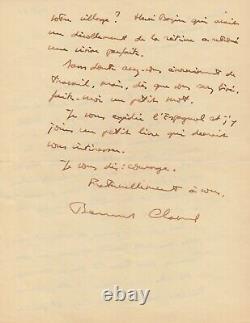 votre village ? Henri Bazin qui avait
un décollement de la rétine a retrouvé
une vision parfaite.
Sans doute avez-vous énormément de
travail, mais, dès que vous serez fixé,
faites-moi un petit mot.
Je vous expédie l'Espagnol et j'y
joins un petit livre qui devrait
vous intéresser.
Je vous dis : courage.
Fraternellement à vous.
Bernard Clavel
© ebay